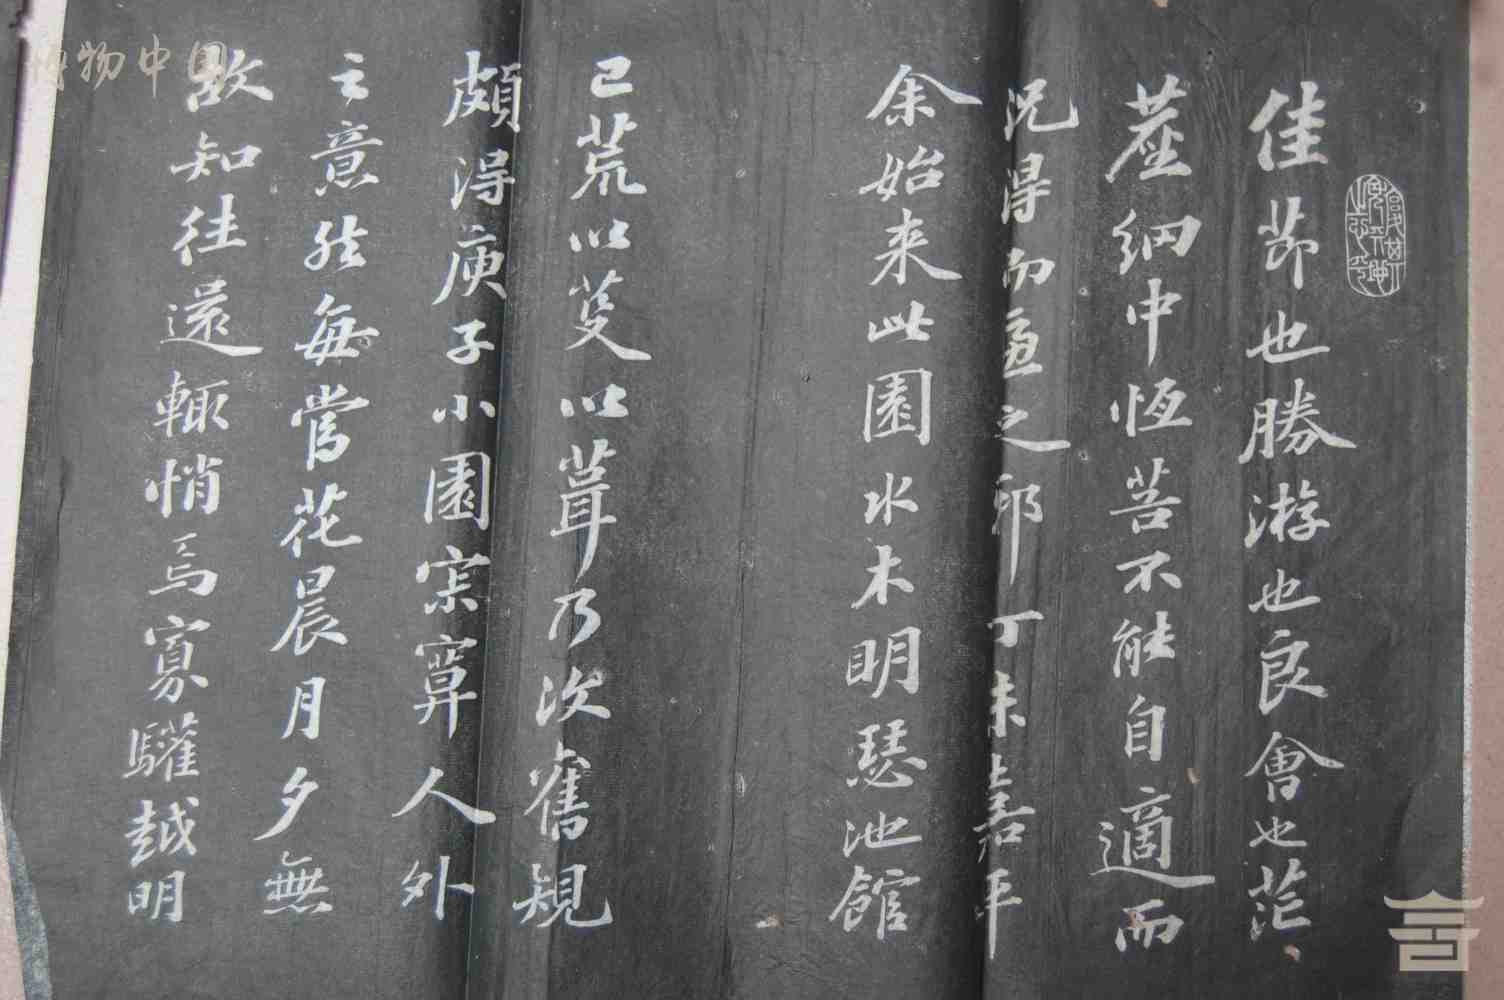 佳節也勝游也良會也茫
塵網中恆苦不能自適而
況得而兼之邪丁未嘉平
余始來此園水木明瑟池館
已荒以芟以葺乃次舊規
頗得庾子小園寂寞人外
之意然每當花晨月夕無
故知往還輒悄焉寡驩越明
博物中国